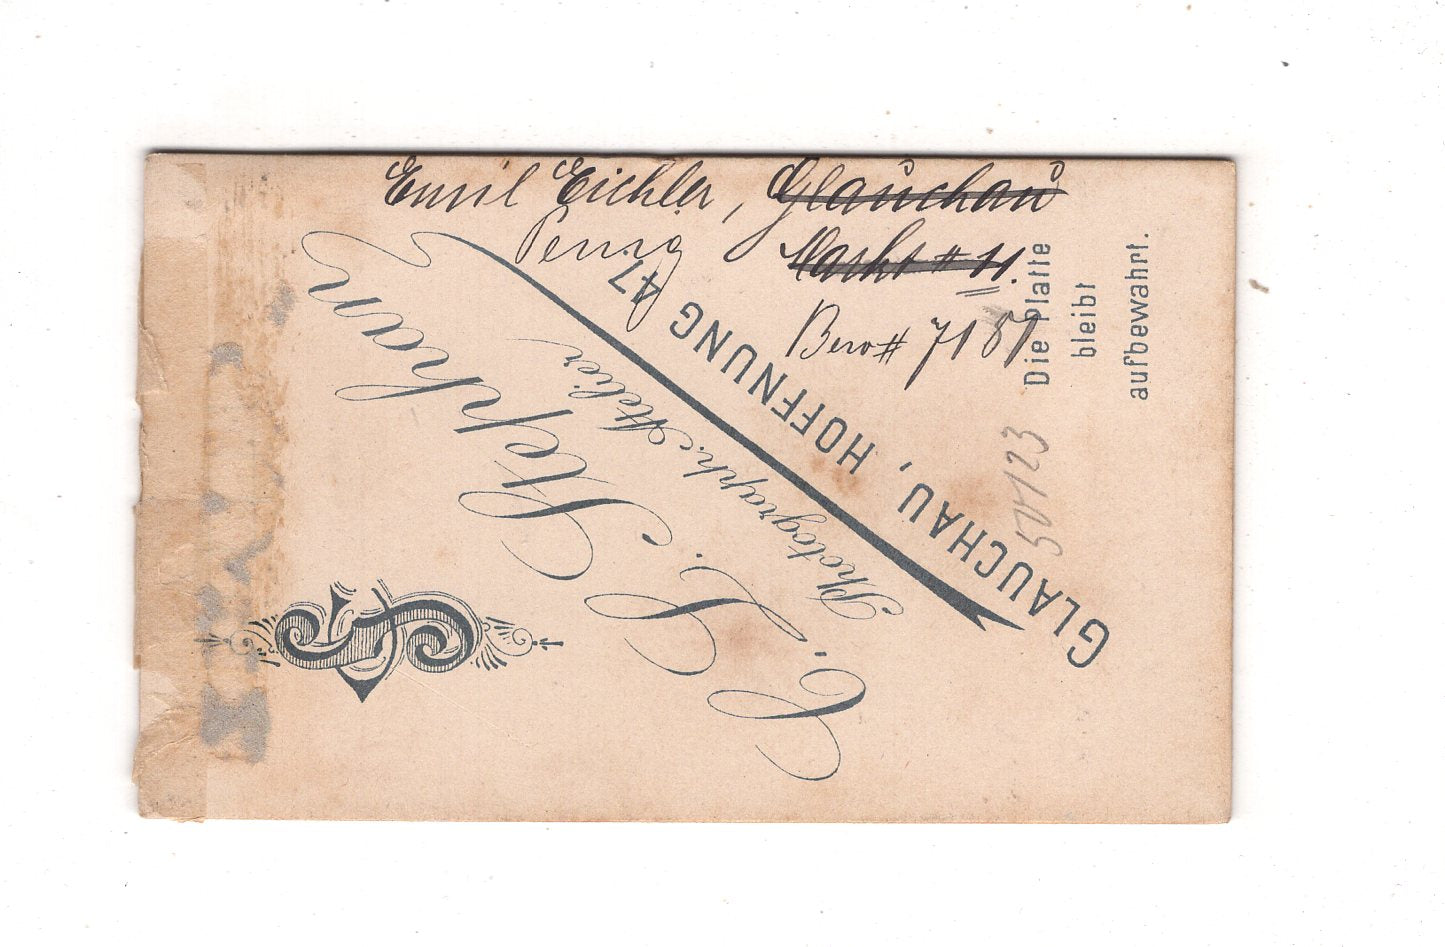 Emil Eichler, Glauchau
Penig
Markt # 11.
Bero # 7181
C. L. Stephan
Photograph. Atelier
GLAUCHAU, HOFFNUNG 47
Die Platte
bleibt
aufbewahrt.
50123